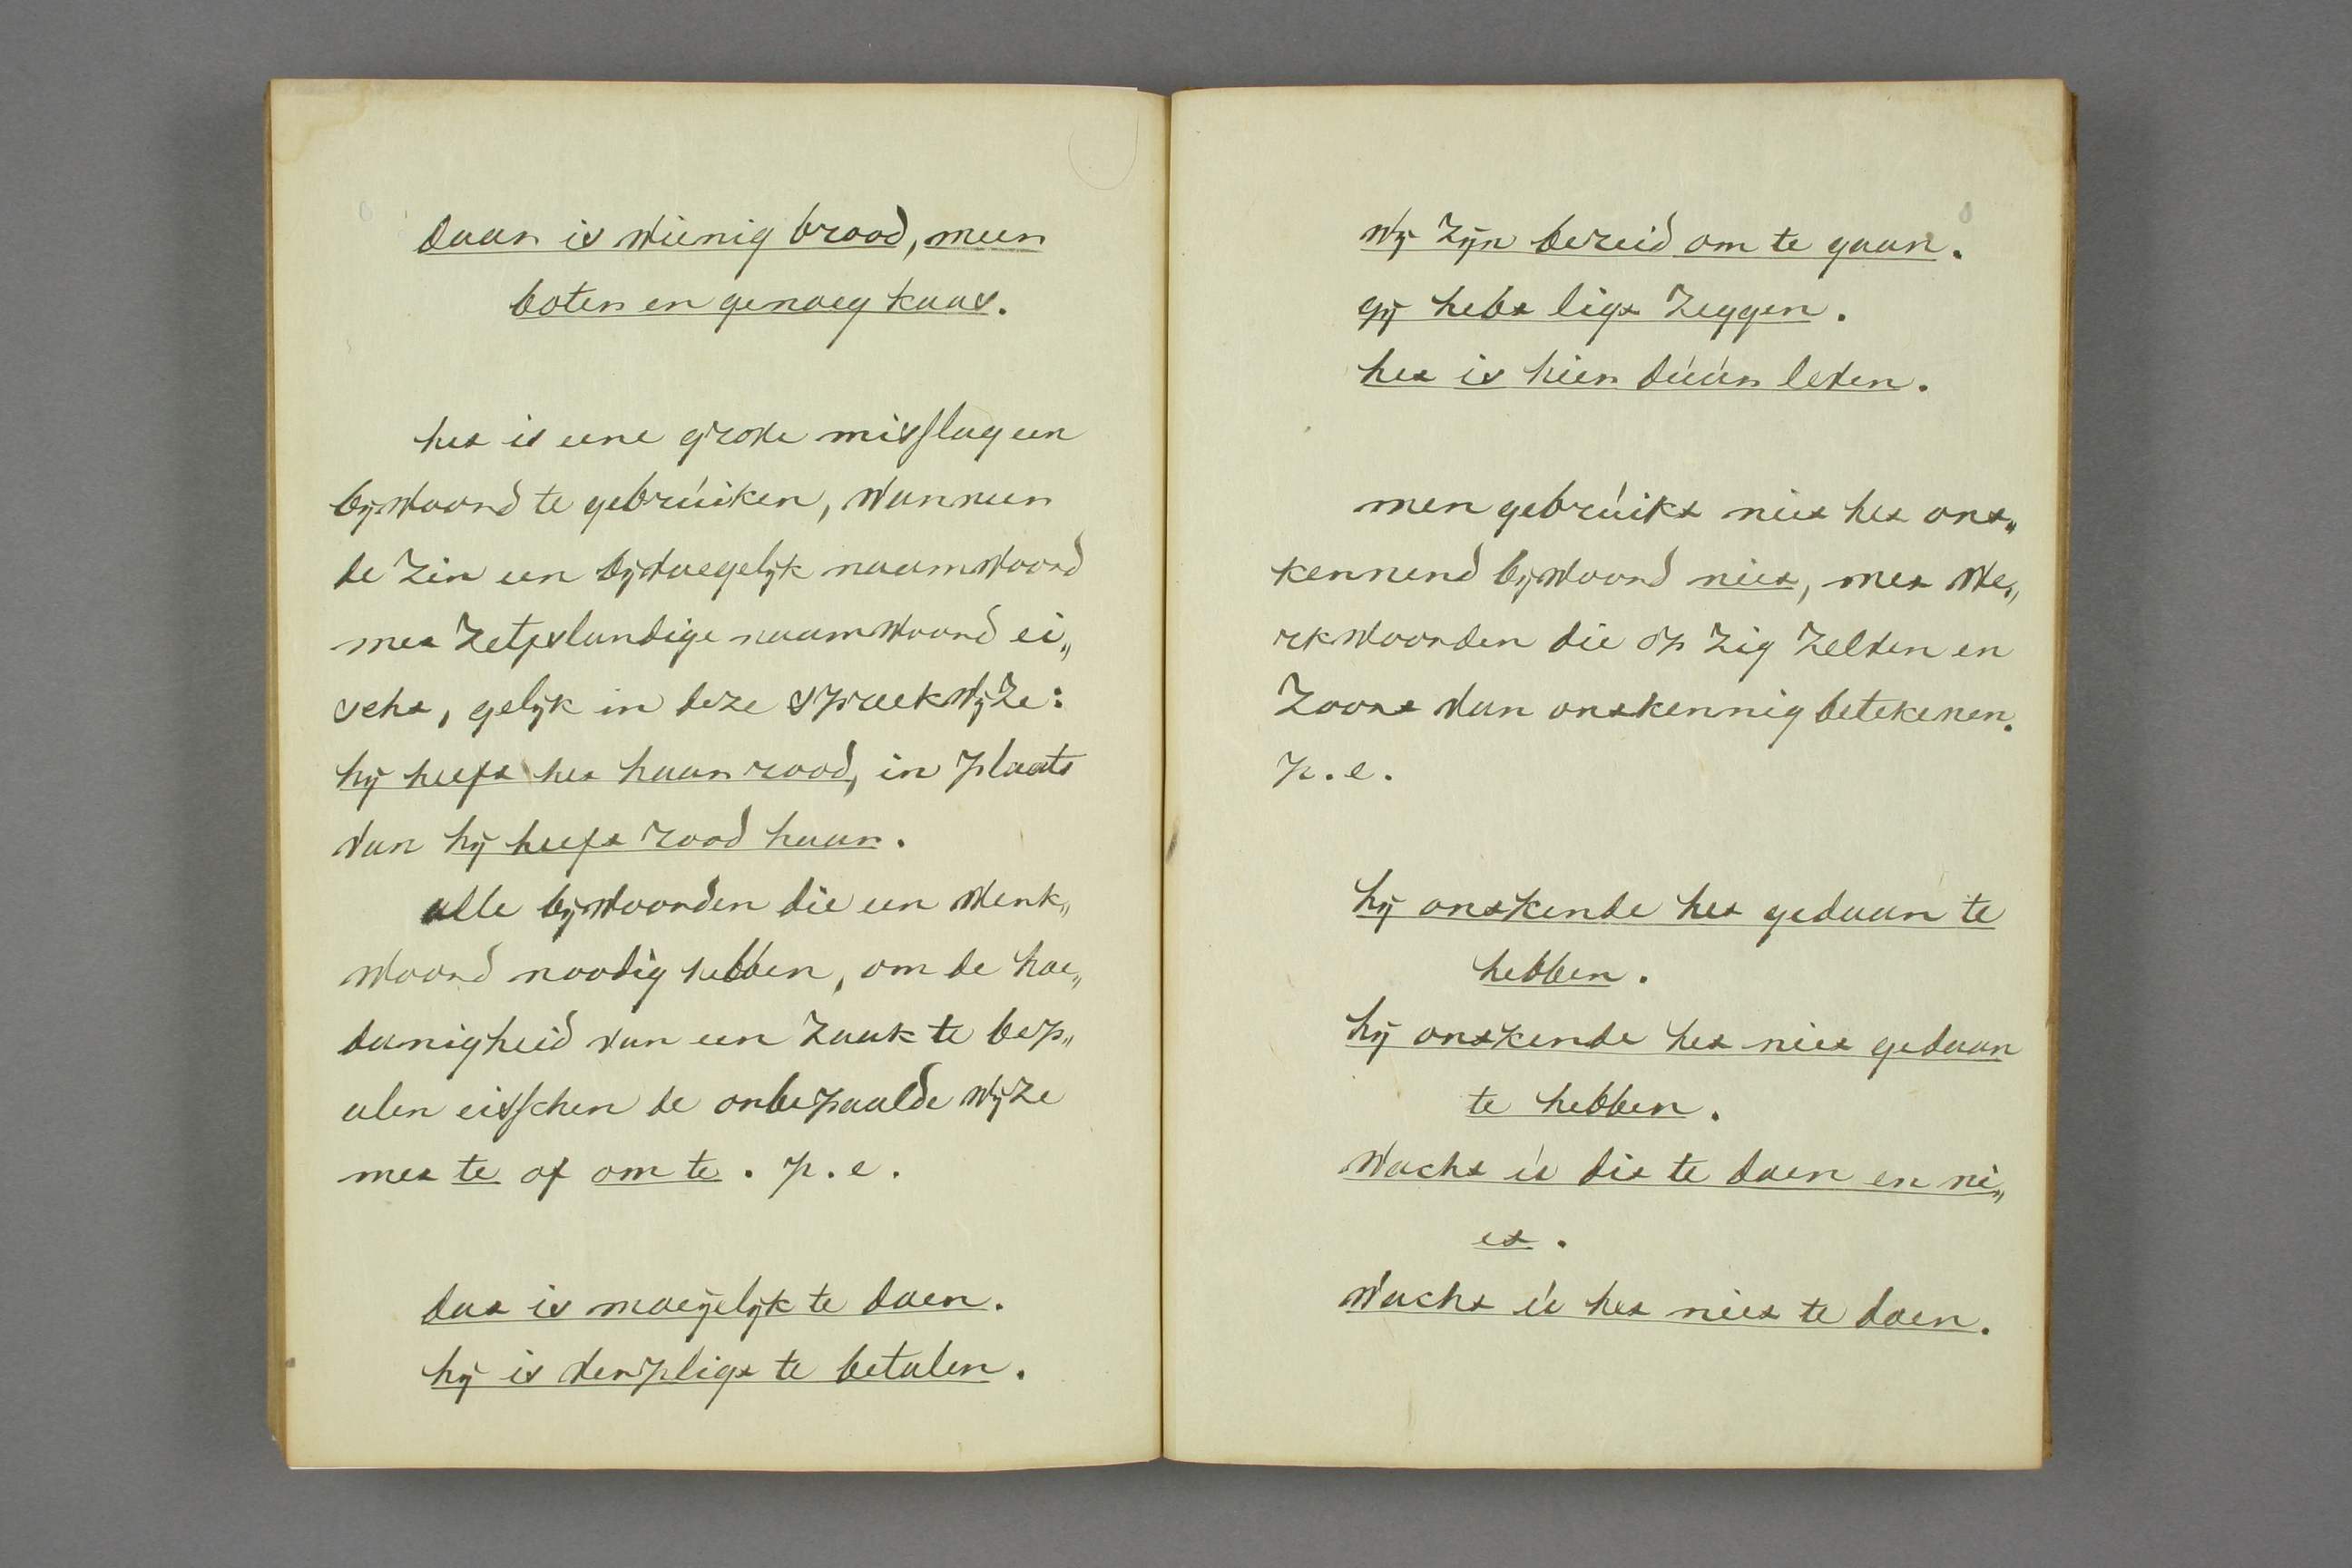 daar is weinig brood, meer
boter en genoeg kaas.
het is eene grove misslag een
bijwoord te gebruiken, wanneer
de zin een bijvoegelijk naamwoord
met zelfslandige naamwoord ei„
scht, gelijk in deze spreekwijze:
hij heeft het haar rood, in plaats
van hij heeft rood haar.
alle bijwoorden die een werk„
woord noodig hebben, om de hoe„
danigheid van een zaak te bep„
alen eisschen de onbepaalde wijze
met te of om te. p.e.
dat is moeijelijk te doen.
hij is verpligt te betalen.
wij zijn bereid om te gaan.
gij hebt ligt zeggen.
het is hier duur leven.
men gebruikt niet het ont„
kennend bijwoord niet, met we„
rkwoorden die op zig zelven en
zoort van ontkennig betekenen.
p.e.
hij ontkende het gedaan te
hebben.
hij ontkende het niet gedaan
te hebben.
wacht u dit te doen en ni„
et.
wacht u het niet te doen.